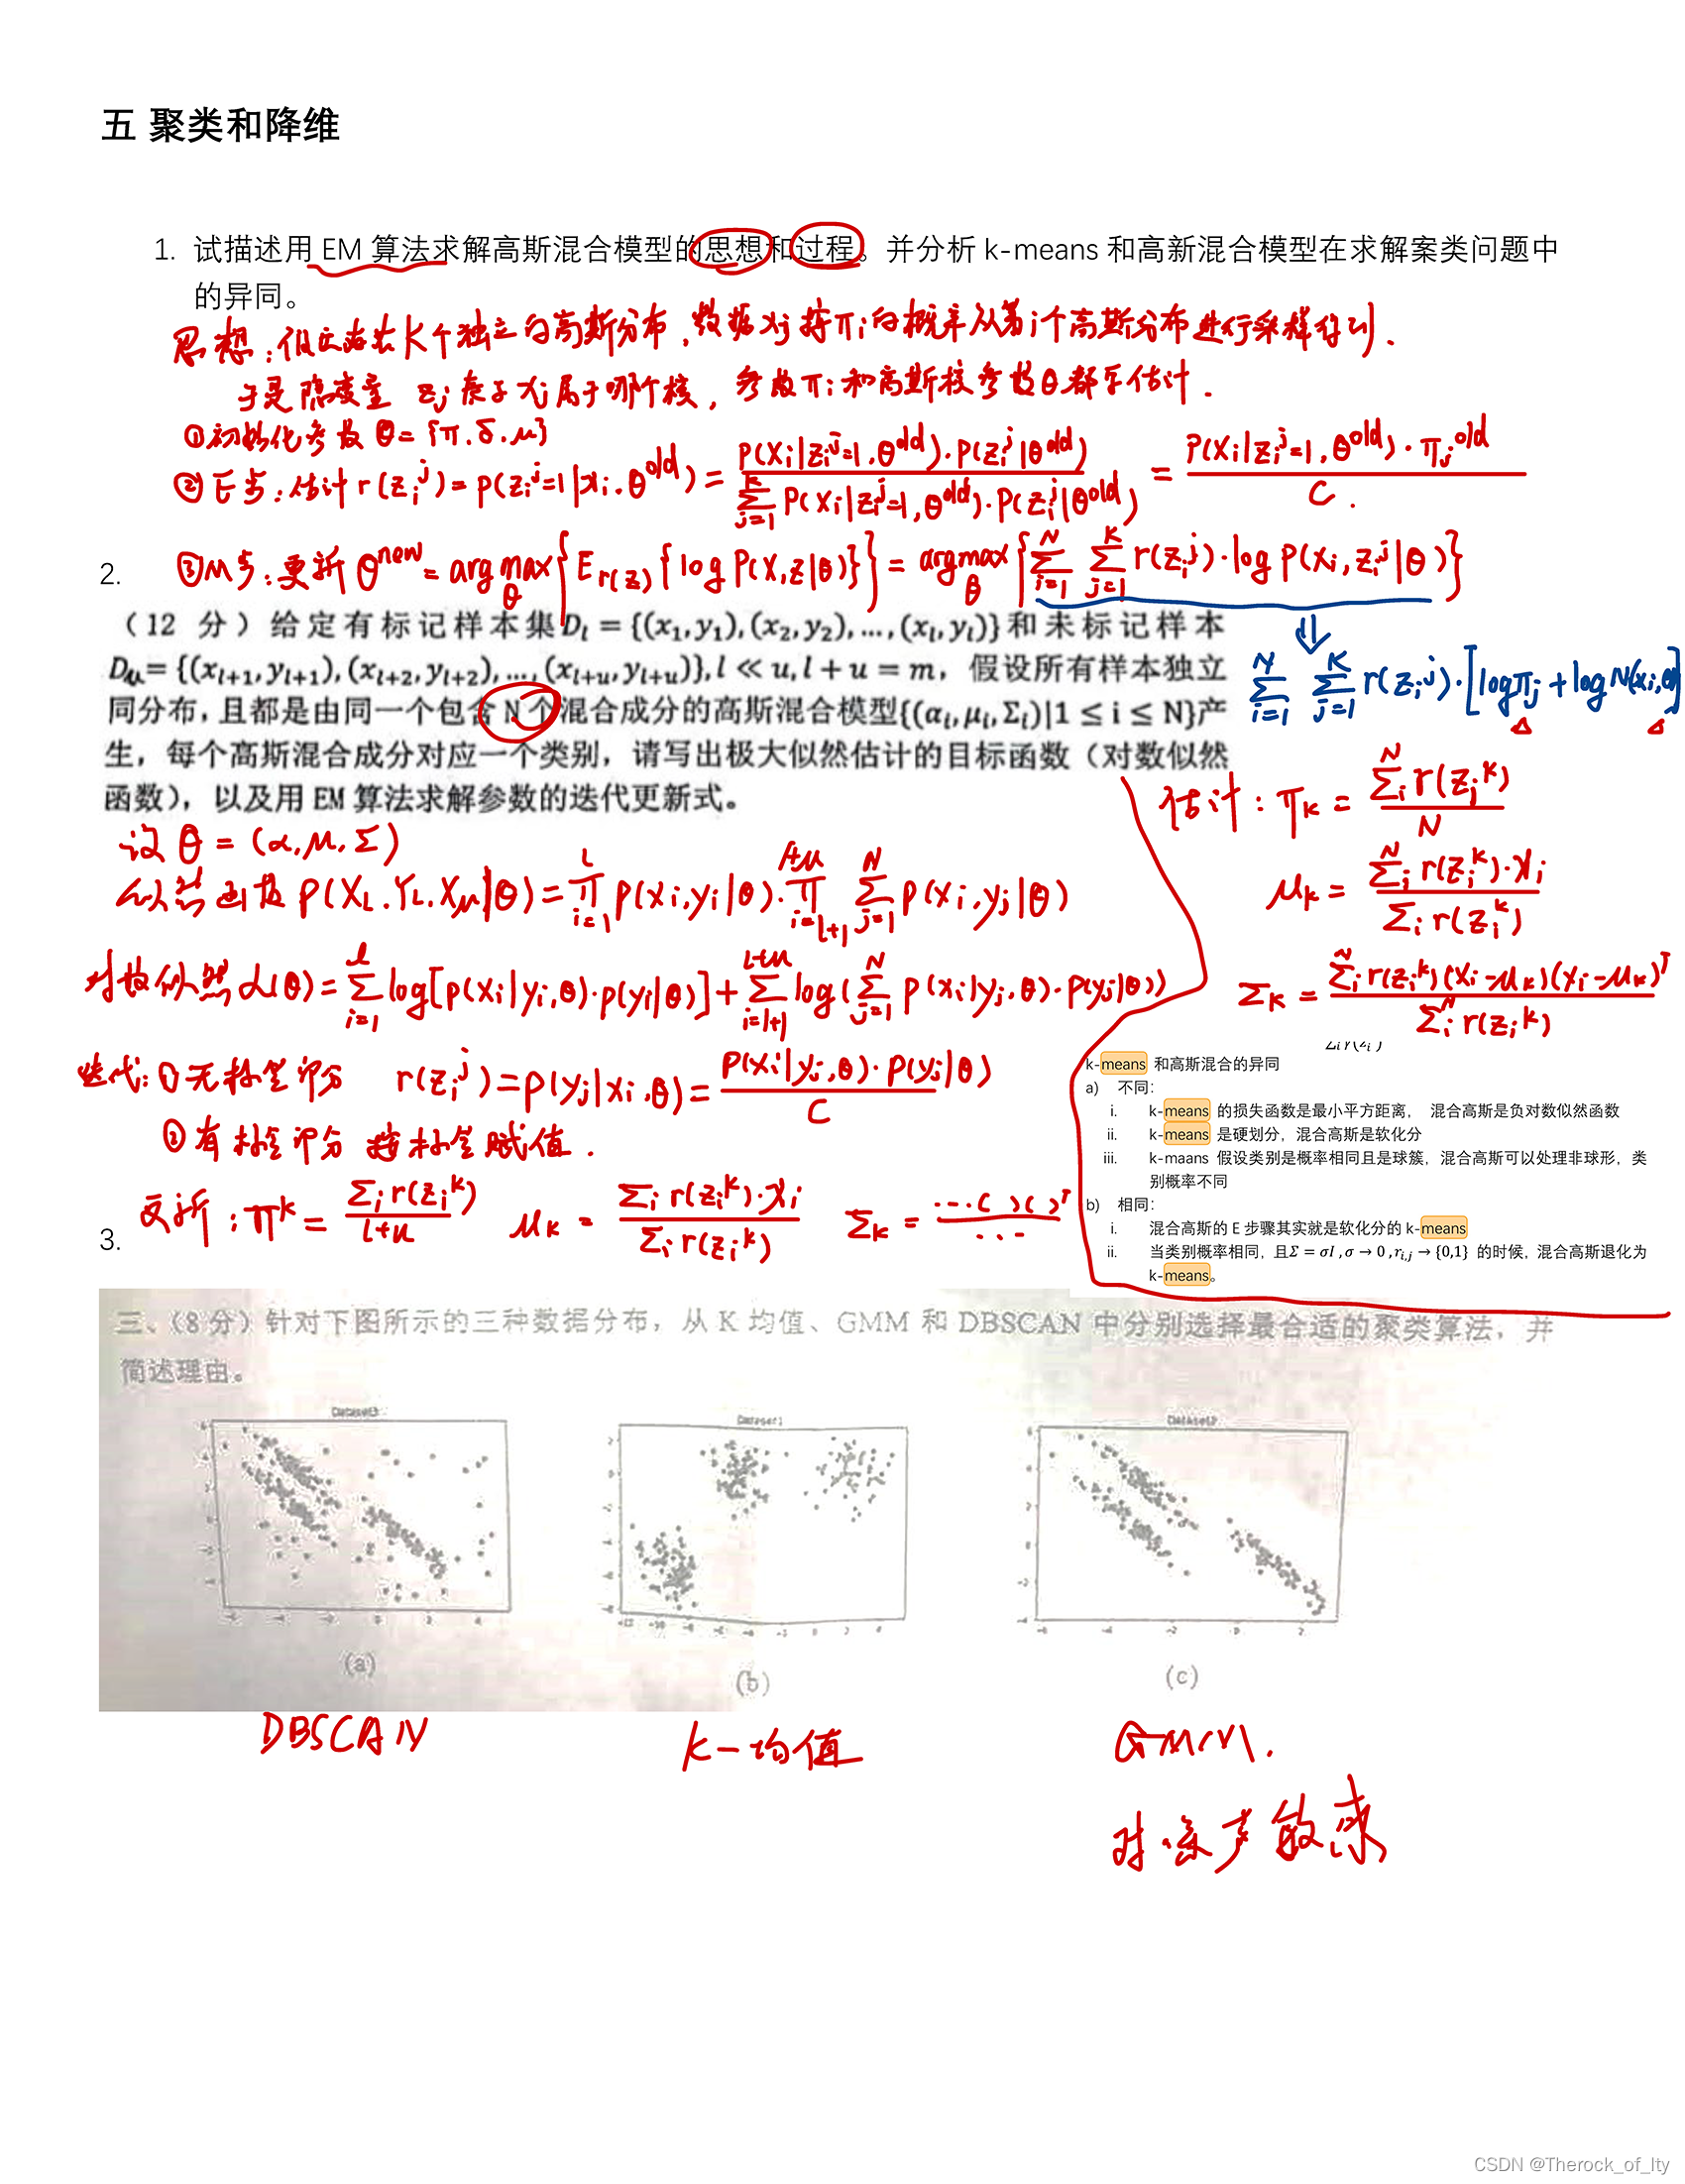 五 聚类和降维
1. 试描述用 EM 算法求解高斯混合模型的思想和过程。并分析 k-means 和高新混合模型在求解案类问题中
的异同。
思想：假设存在K个独立的高斯分布，数据xj按πi的概率从第i个高斯分布进行采样得到．
于是隐变量 zj 表示 xj 属于哪个核，参数πi和高斯核参数θ都要估计．
①初始化参数 θ={π.δ.μ}
②E步：估计 r(zi^j)=p(zi^j=1|xi.θ^old)= P(xi|zi^j=1.θ^old)·P(zi^j|θ^old) / Σ_{j=1}^{K} P(xi|zi^j=1,θ^old)·P(zi^j|θ^old) = P(xi|zi^j=1,θ^old)·πj^old / C.
2. ③M步：更新 θ^new = argmax_θ {E_{r(z)}{log P(X,Z|θ)}} = argmax_θ {Σ_{i=1}^{N} Σ_{j=1}^{K} r(zi^j)·log P(xi,zi^j|θ)}
（12 分）给定有标记样本集Dl = {(x1,y1),(x2,y2),...,(xl,yl)}和未标记样本
Du={(xl+1,yl+1),(xl+2,yl+2),...,(xl+u,yl+u)},l ≪ u,l + u = m，假设所有样本独立
同分布，且都是由同一个包含 N 个混合成分的高斯混合模型{(αi,μi,Σi)|1 ≤ i ≤ N}产
生，每个高斯混合成分对应一个类别，请写出极大似然估计的目标函数（对数似然
函数），以及用 EM 算法求解参数的迭代更新式。
Σ_{i=1}^{N} Σ_{j=1}^{K} r(zi^j)·[logπj+logN(xi,θ)]
估计：πk = Σi^N r(zi^k) / N
μk = Σi^N r(zi^k)·xi / Σi r(zi^k)
Σk = Σi^N r(zi^k)(xi-μk)(xi-μk)^T / Σi^N r(zi^k)
设 θ = (α,μ,Σ)
似然函数 P(XL.YL.Xu|θ)=π_{i=1}^{l} p(xi,yi|θ)·π_{i=l+1}^{l+u} Σ_{j=1}^{N} p(xi,yj|θ)
对数似然 L(θ)=Σ_{i=1}^{l} log[p(xi|yi,θ)·p(yi|θ)]+Σ_{i=l+1}^{l+u} log(Σ_{j=1}^{N} p(xi|yj,θ)·p(yj|θ))
迭代：①无标签部分 r(zi^j)=p(yj|xi.θ)= P(xi|yj,θ)·P(yj|θ) / C
②有标签部分 按标签赋值．
更新：πk = Σi r(zi^k) / l+u μk = Σi r(zi^k)·xi / Σi r(zi^k) Σk = ...( )( )^T / ...
k-means 和高斯混合的异同
a) 不同：
i. k-means 的损失函数是最小平方距离， 混合高斯是负对数似然函数
ii. k-means 是硬划分，混合高斯是软化分
iii. k-maans 假设类别是概率相同且是球簇，混合高斯可以处理非球形，类
别概率不同
b) 相同：
i. 混合高斯的 E 步骤其实就是软化分的 k-means
ii. 当类别概率相同，且Σ = σI ,σ → 0 ,r_{i,j} → {0,1} 的时候，混合高斯退化为
k-means。
3.
三、（8 分）针对下图所示的三种数据分布，从 K 均值、GMM 和 DBSCAN 中分别选择最合适的聚类算法，并
简述理由。
Dataset3 Dataset1 Dataset2
(a) (b) (c)
DBSCAN K-均值 GMM.
对噪声敏感
CSDN @Therock_of_lty